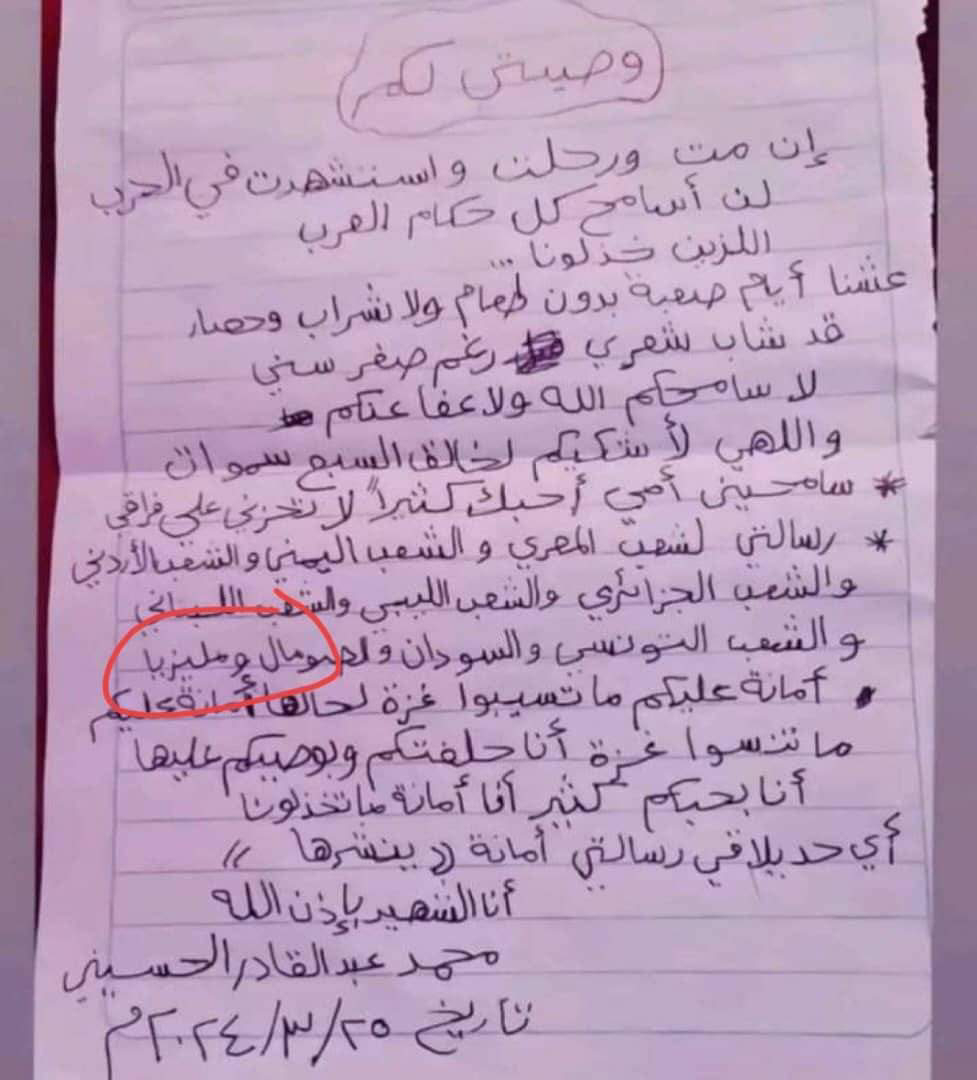 وصيتي لكم
إن مت ورحلت واستشهدت في الحرب
لن أسامح كل حكام العرب
اللزين خذلونا ...
عشنا أيام صعبة بدون طعام ولا شراب وحصار
قد شاب شعري رغم صغر سني
لا سامحكم الله ولا عفا عنكم
واللهي لأشكيكم لخالق السبع سموات
* سامحيني أمي أحبك كثيراً لا تحزني على فراقي
* رسالتي لشعب المصري والشعب اليمني والشعب الأردني
والشعب الجزائري والشعب الليبي والشعب اللبناني
والشعب التونسي والسودان ولصومال ومليزيا
أمانة عليكم ما تسيبوا غزة لحالها أمانة عليكم
ما تنسوا غزة أنا حلفتكم وبوصيكم عليها
أنا بحبكم كثير أنا أمانة ما تخذلونا
أي حد يلاقي رسالتي أمانة (( ينشرها ))
أنا الشهيد بإذن الله
محمد عبد القادر الحسيني
تاريخ ٢٠٢٤/٣/٢٥ م